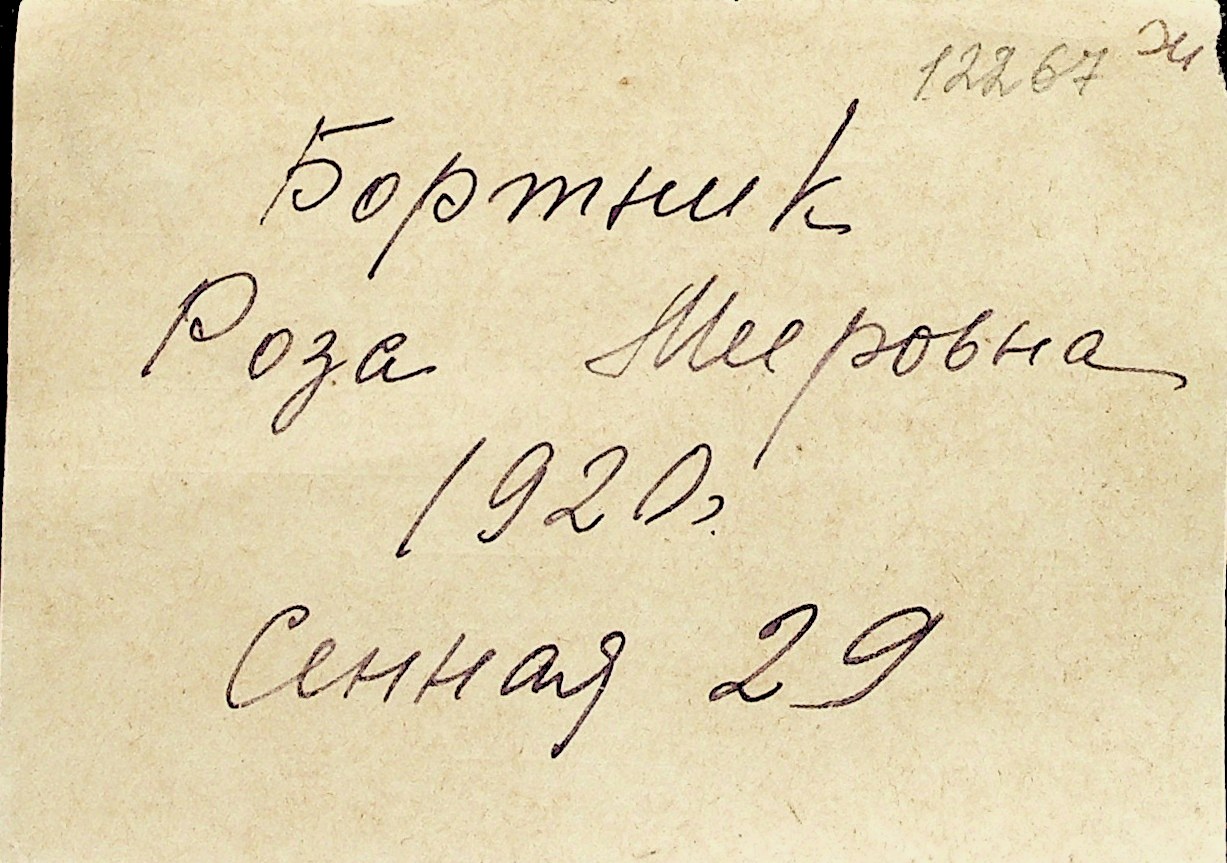 12267
Бортник
Роза Мееровна
1920г.
Сенная 29